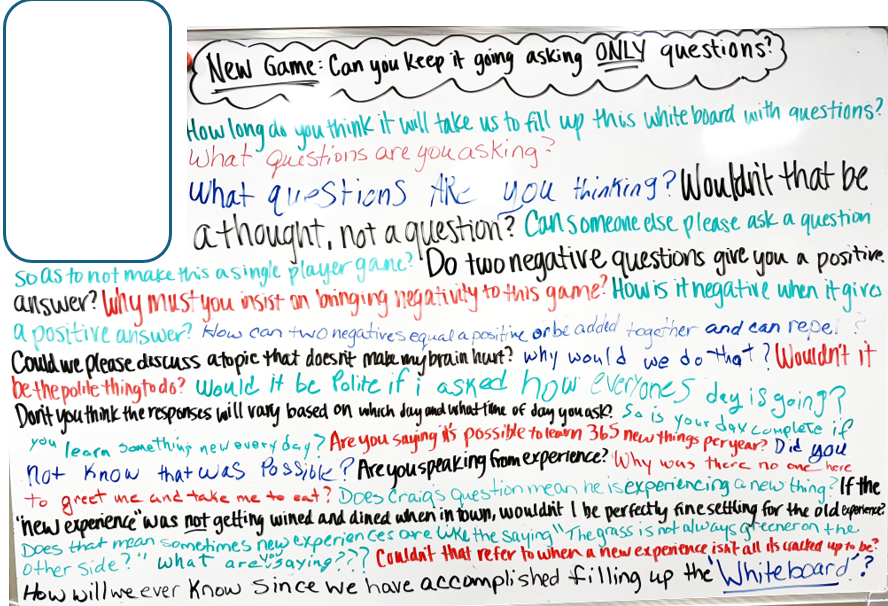 New Game: Can you keep it going asking ONLY questions?
How long do you think it will take us to fill up this whiteboard with questions?
What questions are you asking?
What questions ARE you thinking? Wouldn't that be
a thought, not a question? Can someone else please ask a question
so as to not make this a single player game? Do two negative questions give you a positive
answer? Why must you insist on bringing negativity to this game? How is it negative when it gives
a positive answer? How can two negatives equal a positive or be added together and can repel?
Could we please discuss a topic that doesn't make my brain hurt? why would we do that? Wouldn't it
be the polite thing to do? Would it be Polite if i asked how everyones day is going?
Don't you think the responses will vary based on which day and what time of day you ask? So is your day complete if
you learn something new every day? Are you saying it's possible to learn 365 new things per year? Did you
not know that was possible? Are you speaking from experience? Why was there no one here
to greet me and take me to eat? Does Craig's question mean he is experiencing a new thing? If the
"new experience" was not getting wined and dined when in town, wouldn't I be perfectly fine settling for the old experience?
Does that mean sometimes new experiences are like the saying "The grass is not always greener on the
other side?" what are you saying??? Couldn't that refer to when a new experience isn't all its cracked up to be?
How will we ever know since we have accomplished filling up the "Whiteboard"?